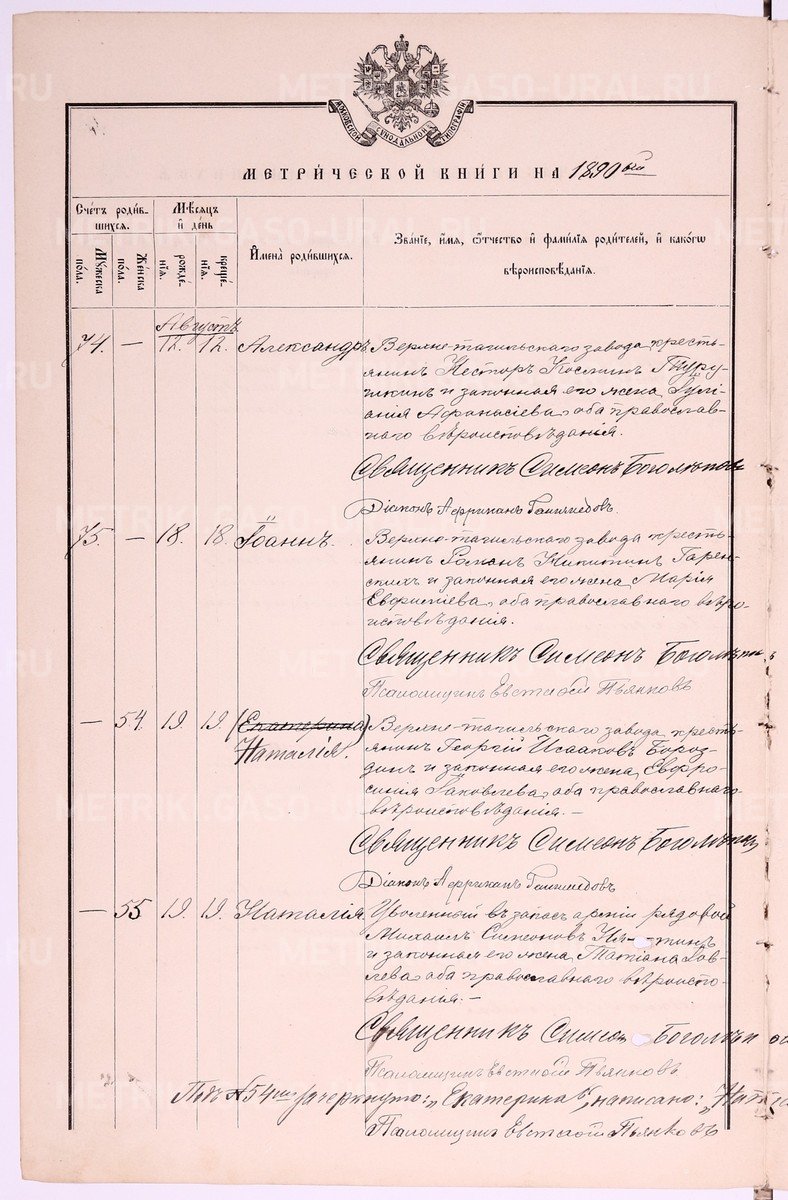 МОСКОВСКОЙ СѴНОДАЛЬНОЙ ТИПОГРАФІИ
МЕТРИ́ЧЕСКОЙ КНИ́ГИ НА 1890ый
Сче́тъ роди́в-
шихся.
Мѣ́сяцъ
и҆ де́нь
Мꙋ́жеска
по́ла.
Же́нска
по́ла.
рожде́-
нїѧ.
креще́-
нїѧ.
И҆мена̀ роди́вшихся.
Зва́нїе, и҆́мѧ, ѻ҆́тчество и҆ фами́лїѧ роди́телей, и҆ како́гѡ
вѣроисповѣ́данїѧ.
Августъ
74. — 12. 12. Александръ
Верхне-тагильскаго завода кресть-
янинъ Несторъ Косминъ
и законная его жена Іулі-
анія Афанасіева, оба православ-
наго вѣроисповѣданія.
Священникъ Симеонъ Боголюповъ
Діаконъ Африканъ
75. — 18. 18. Іоаннъ.
Верхне-тагильскаго завода кресть-
янинъ Романъ Никитинъ Гарен-
скихъ и законная его жена Марія
Евфиміева, оба православнаго вѣро-
исповѣданія.
Священникъ Симеонъ
Псаломщикъ Евстафій Пьянковъ
— 54. 19. 19. (Екатерина)
Наталія.
Верхне-тагильскаго завода кресть-
янинъ Георгій Исааковъ Бороз-
динъ и законная его жена Евфро-
синія Іаковлева, оба православнаго
вѣроисповѣданія. —
Священникъ Симеонъ
Діаконъ Африканъ
— 55 19. 19. Наталія.
Уволенный въ запасъ арміи рядовой
Михаилъ Симеоновъ
и законная его жена Татіана Іов-
лева, оба православнаго вѣроиспо-
вѣданья. —
Священникъ
Псаломщикъ Евстафій Пьянковъ
Подъ №54мъ зачеркнуто: „Екатерина", написано: „
Псаломщикъ Евстафій Пьянковъ
METRIK.GASO-URAL.RU